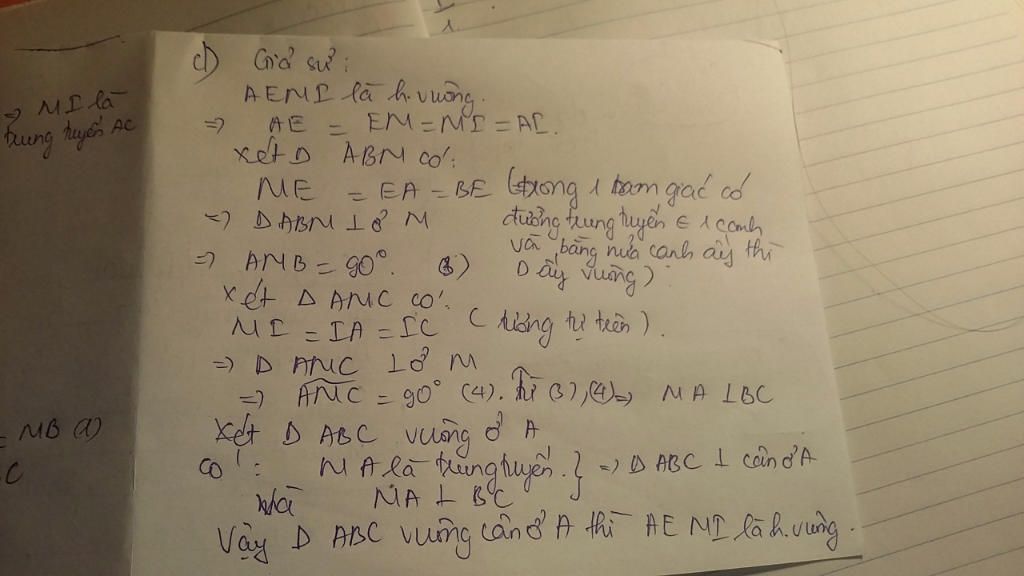 => MI là
trung tuyến AC
= MB (2)
C
c) Giả sử:
AEMI là h.vuông.
=> AE = EM = MI = AI.
Xét Δ ABM có:
ME = EA = BE (trong 1 tam giác có
đường trung tuyến ∈ 1 cạnh
và bằng nửa cạnh ấy thì
Δ ấy vuông)
=> Δ ABM ⊥ ở M
=> AMB = 90°. (3)
Xét Δ AMC có:
MI = IA = IC (tương tự trên).
=> Δ AMC ⊥ ở M
=> AMC = 90° (4). Từ (3), (4) => MA ⊥ BC
Xét Δ ABC vuông ở A
có: MA là trung tuyến. } => Δ ABC ⊥ cân ở A
mà MA ⊥ BC
Vậy Δ ABC vuông cân ở A thì AEMI là h.vuông.